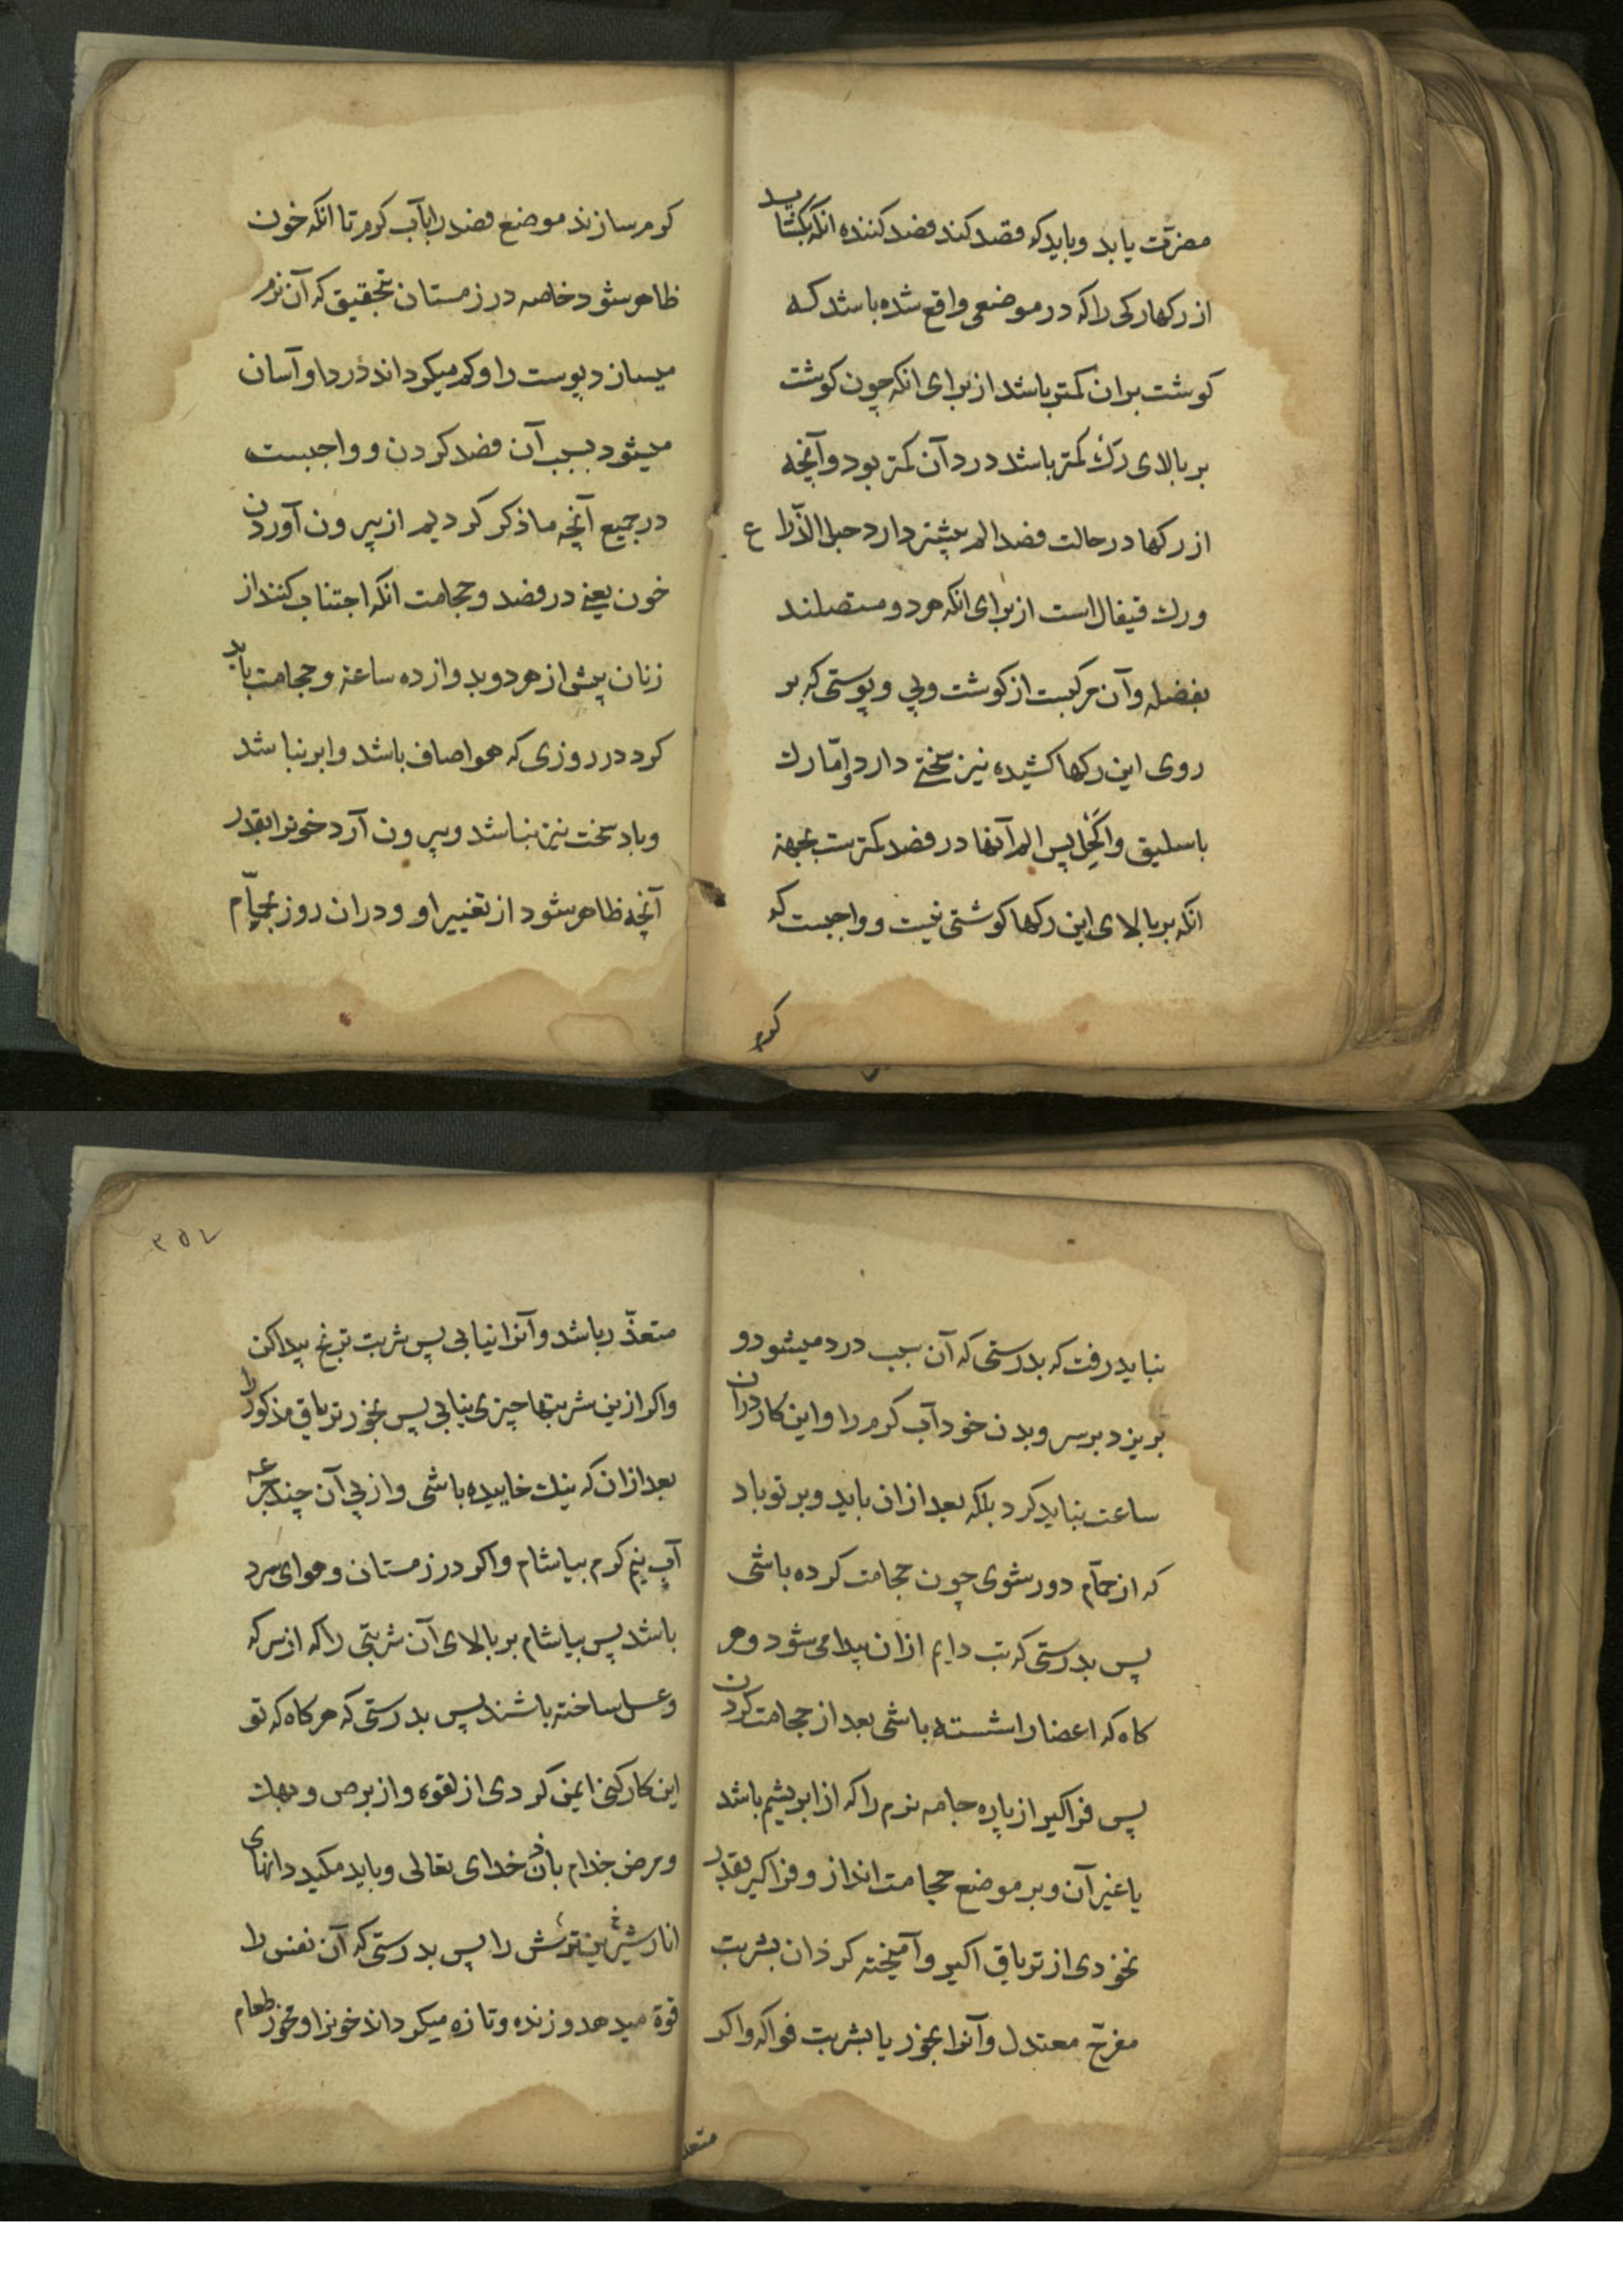 مضرّت یابد و باید که قصد کند فصد کننده انکه بکشاید
از رکها رکی را که در موضعی واقع شده باشد که
کوشت بران کمتر باشد از برای انکه چون کوشت
بر بالای رک کمتر باشد درد آن کمتر بود و آنچه
از رکها در حالت فصد الم بیشتر دارد حبل الذّراع
و رک قیفال است از برای انکه هر دو متصلند
بعضله و آن مرکبست از کوشت و پی و پوستی که بر
روی این رکها کشیده نیز سختی دارد و امّا رک
باسلیق و اکحل پس الم آنها در فصد کمترست بجهة
انکه بر بالای این رکها کوشتی نیست و واجبست که
کرم
کرم سازند موضع فصد را بآب کرم تا انکه خون
ظاهر شود خاصه در زمستان بتحقیق که آن نرم
میسازد پوست را و کم میکرداند درد را و آسان
میشود بسبب آن فصد کردن و واجبست
در جمیع آنچه ما ذکر کردیم از بیرون آوردن
خون یعنی در فصد و حجامت انکه اجتناب کنند از
زنان پیش از هر دو بدوازده ساعة و حجامت باید
کرد در روزی که هوا صاف باشد و ابر نباشد
و باد سخت نیز نباشد و بیرون آرد خونرا بقدر
آنچه ظاهر شود از تغییر او و دران روز بحمّام
نباید رفت که بدرستی که آن سبب درد میشود و
بریزد بر سر و بدن خود آب کرم را و این کار دران
ساعت نباید کرد بلکه بعد ازان باید و بر تو باد
که از حمّام دور شوی چون حجامت کرده باشی
پس بدرستی که تب دایم ازان پیدا می شود و هر
کاه که اعضا را شسته باشی بعد از حجامت کردن
پس فراکیر از پاره جامه نرم را که از ابریشم باشد
یا غیر آن و بر موضع حجامت انداز و فراکیر بقدر
نخودی از تریاق اکبر و آمیخته کردان بشربت
مفرّح معتدل و آنرا بخور یا بشربت فواکه و اکر
متعذ
۳۵۷
متعذّر باشد و آنرا نیابی پس شربت ترنج پیدا کن
و اکر ازین شربتها چیزی نیابی پس بخور تریاق مذکور را
بعد ازان که نیک خاییده باشی و از پی آن چند جرعه
آب نیم کرم بیاشام و اکر در زمستان و هوای سرد
باشد پس بیاشام بر بالای آن شربتی را که از سرکه
و عسل ساخته باشند پس بدرستی که هرکاه که تو
این کار کنی ایمن کردی از لقوه و از برص و بهک
و مرض جذام باذن خدای تعالی و باید مکید دانهای
انار شیرین ترش را پس بدرستی که آن نفس را
قوة میدهد و زنده و تازه میکرداند خونرا و مخور طعام